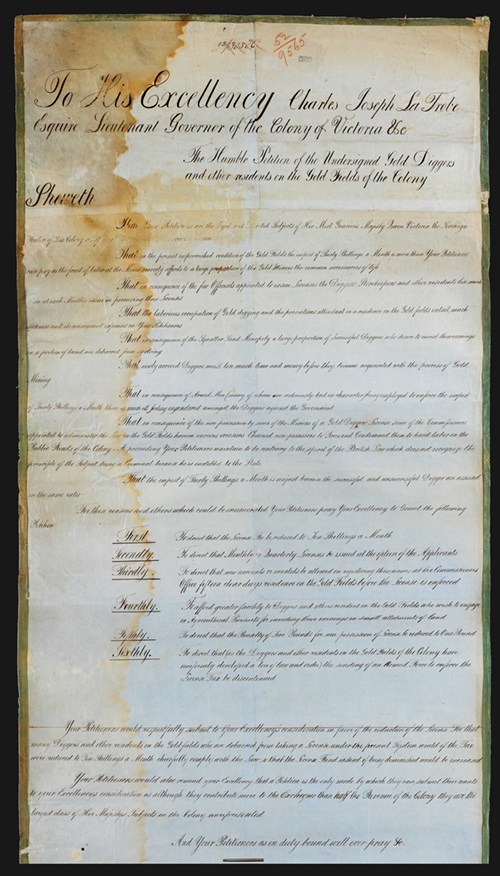 52/9565
To His Excellency Charles Joseph La Trobe
Esquire Lieutenant Governor of the Colony of Victoria &c
The Humble Petition of the Undersigned Gold Diggers
and other residents on the Gold Fields of the Colony
Sheweth
That Your Petitioners are the Loyal and Devoted Subjects of Her Most Gracious Majesty Queen Victoria the Sovereign
Ruler of this Colony
That in the present impoverished condition of the Gold Fields the impost of Thirty Shillings a Month is more than Your Petitioners
can pay as the fruit of labor at the Mines scarcely affords to a large proportion of the Gold Miners the common necessaries of life
That in consequence of the few Officials appointed to issue Licenses the Diggers Storekeepers and other residents lose much
time at each Month in procuring their Licenses
That the laborious occupation of Gold digging and the privations attendant on a residence on the Gold fields entail much
sickness and its consequent expenses on Your Petitioners
That in consequence of the Squatter Land Monopoly a large proportion of Successful Diggers who desire to invest their earnings
in a portion of land are debarred from so doing
That newly arrived Diggers must lose much time and money before they become acquainted with the process of Gold
Mining
That in consequence of Armed Men (many of whom are notoriously bad in character) being employed to enforce the impost
of Thirty Shillings a Month there is much ill feeling engendered amongst the Diggers against the Government
That in consequence of the non possession by some of the Miners of a Gold Diggers License some of the Commissioners
appointed to administer the Law of the Gold Fields have on various occasions Chained non possessors to Trees and Condemned them to hard labor on the
Public Roads of the Colony - A proceeding Your Petitioners maintain to be contrary to the spirit of the British Law which does not recognise the
principle of the Subject being a Criminal because he is indebted to the State
That the impost of Thirty Shillings a Month is unjust because the successful and unsuccessful Digger are assessed
in the same ratio
For these reasons and others which could be enumerated Your Petitioners pray Your Excellency to Grant the following
Petition
First. To direct that the License Fee be reduced to Ten Shillings a Month
Secondly. To direct that Monthly or Quarterly Licenses be issued at the option of the Applicants
Thirdly. To direct that new arrivals or invalids be allowed on registering their names at the Commissioners
Office fifteen clear days residence on the Gold Fields before the License is enforced
Fourthly. To afford greater facility to Diggers and others resident on the Gold Fields who wish to engage
in Agricultural Pursuits for investing their earnings in small allotments of land
Fifthly. To direct that the Penalty of Five Pounds for non possession of License be reduced to One Pound
Sixthly. To direct that (as the Diggers and other residents on the Gold Fields of the Colony have
uniformly developed a love of law and order) the sending of an Armed Force to enforce the
License Tax be discontinued
Your Petitioners would respectfully submit to Your Excellency's consideration in favor of the reduction of the License Fee that
many Diggers and other residents on the Gold fields who are debarred from taking a License under the present System would if the Tax
were reduced to Ten Shillings a Month cheerfully comply with the Law so that the License Fund instead of being diminished would be increased
Your Petitioners would also remind your Excellency that a Petition is the only mode by which they can submit their wants
to your Excellency's consideration as although they contribute more to the Exchequer than half the Revenue of the Colony they are the
largest class of Her Majesty's Subjects in the Colony unrepresented
And Your Petitioners as in duty bound will ever pray &c.